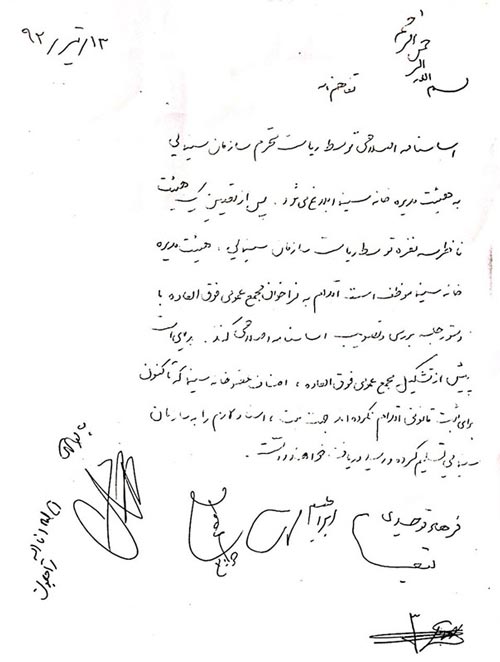 ۱۳/تیر/۹۲
بسم الله الرحمن الرحیم
تفاهم نامه
اساسنامه اصلاحی توسط ریاست محترم سازمان سینمایی
به هیئت مدیره خانه سینما ابلاغ می شود. پس از تعیین یک هیئت
ناظر سه نفره توسط ریاست سازمان سینمایی، هیئت مدیره
خانه سینما موظف است اقدام به فراخوان مجمع عمومی فوق العاده با
دستور جلسه بررسی و تصویب اساسنامه اصلاحی کند. بدیهی است
پیش از تشکیل مجمع عمومی فوق العاده، اصناف عضو خانه سینما که تاکنون
برای ثبت قانونی اقدام نکرده اند جهت ثبت، اسناد لازم را به سازمان
سینمایی تسلیم کرده و رسید دریافت خواهند داشت.
فرهاد توحیدی
ابراهیم